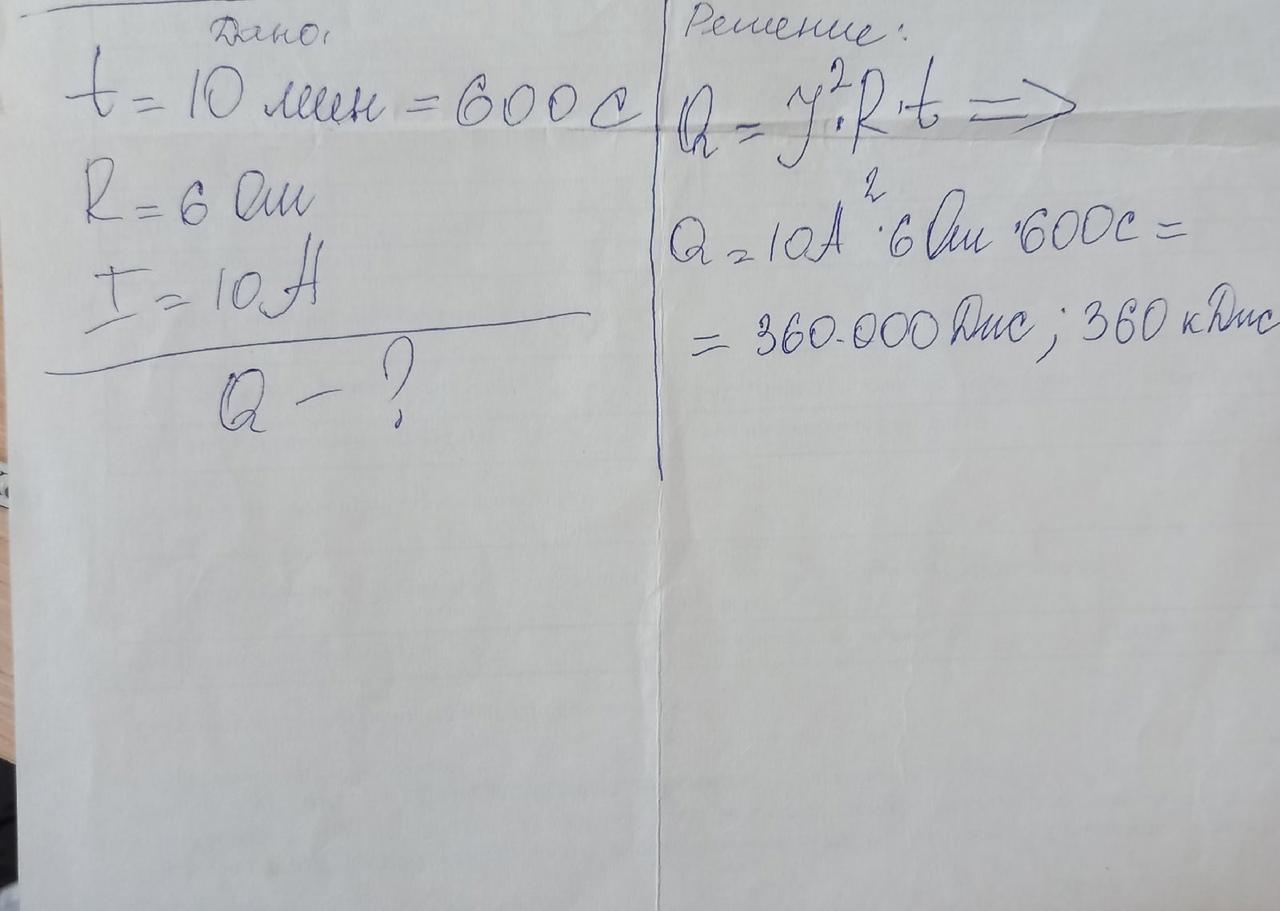 Дано:
t = 10 мин = 600 с
R = 6 Ом
I = 10 А
Q - ?
Решение:
Q = J²·R·t =>
Q = 10А²·6 Ом·600с =
= 360.000 Дж; 360 кДж